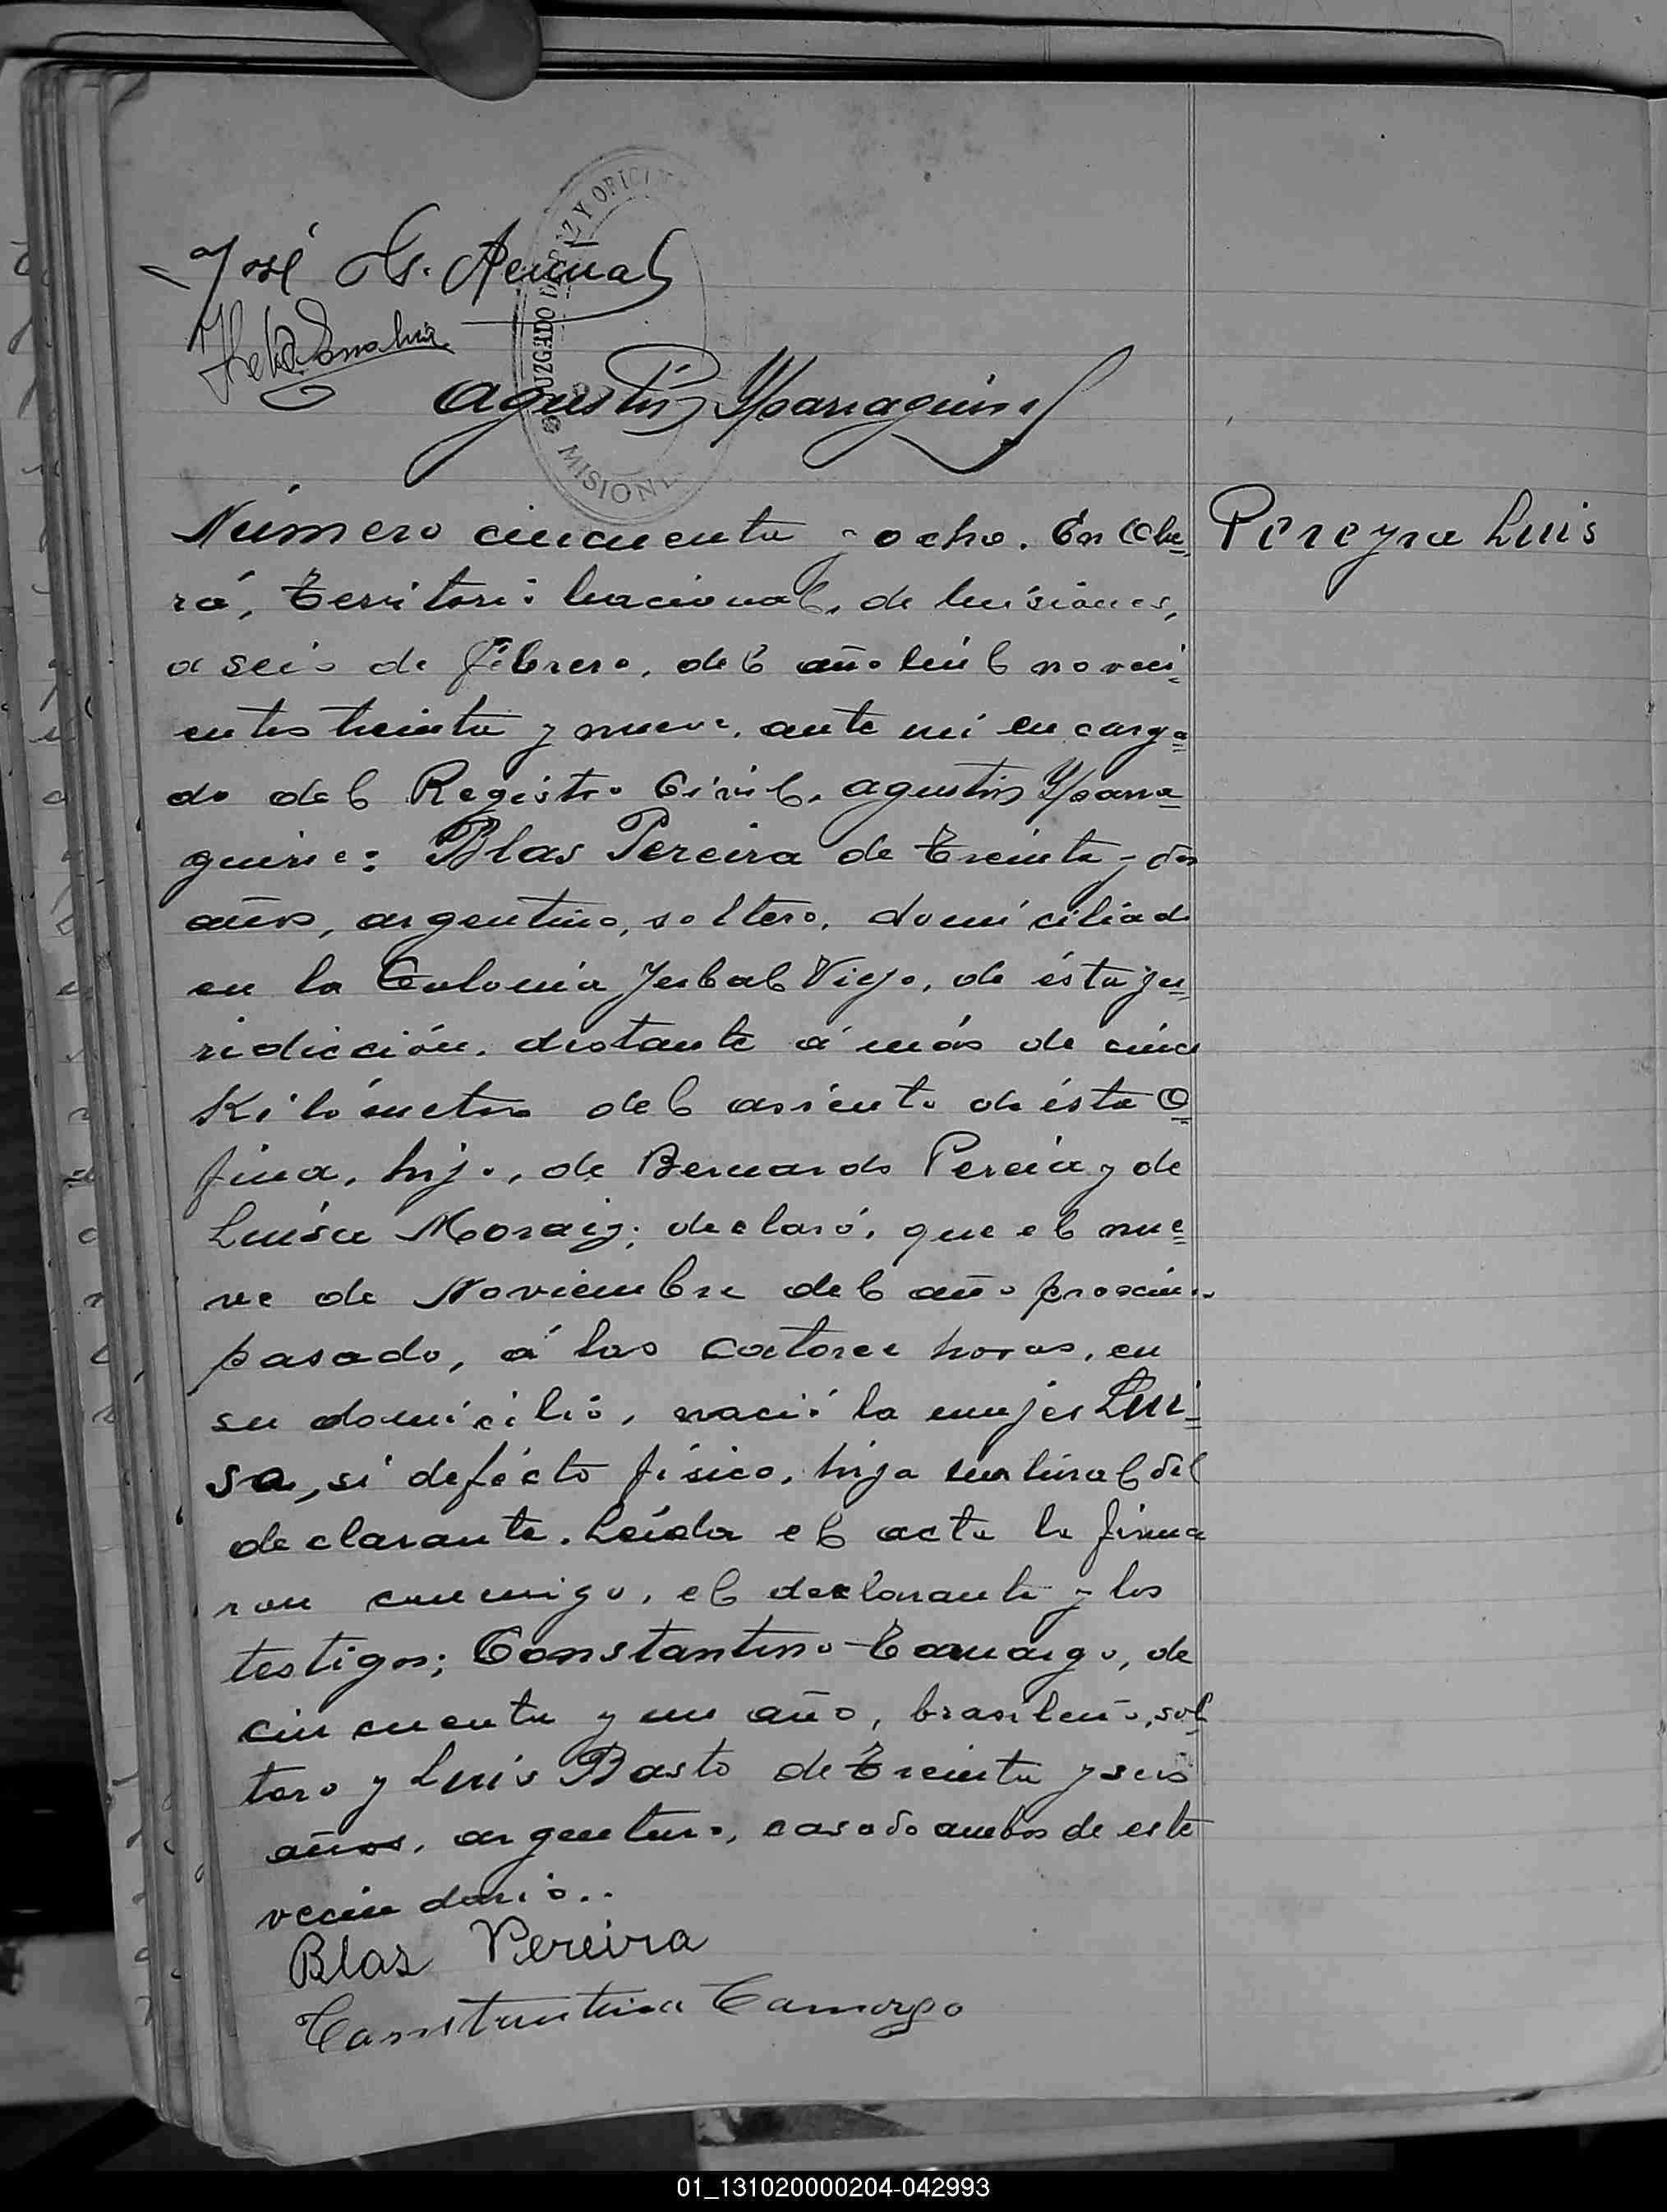 José
Agustín Yparraguirre
JUZGADO DE PAZ Y OFICIN
MISIONE
Número cincuenta y ocho. En Obe=
Pereyra Luis
rá, Territorio Nacional, de Misiones,
a seis de febrero, del año mil noveci=
entos treinta y nueve, ante mí encarga=
do del Registro Civil, Agustín Yparra=
guirre: Blas Pereira de treinta y dos
años, argentino, soltero, domiciliado
en la Colonia Yerbal Viejo, de ésta ju=
ridicción, distante á más de cinco
Kilómetros del asiento de ésta O=
fina, hijo, de Bernardo Pereira y de
Luisa Moraiz; declaró, que el nue=
ve de Noviembre del año proximo
pasado, á las catorce horas, en
su domicilio, nació la mujer Lui=
sa, si defecto físico, hija natural del
declarante. Leída el acta la firma
ron conmigo, el declarante y los
testigos; Constantino Camargo, de
cincuenta y un año, brasileño, sol=
tero y Luis Basto de treinta y seis
años, argentino, casado ambos de este
vecindario..
Blas Pereira
Constantino Camargo
01_131020000204-042993